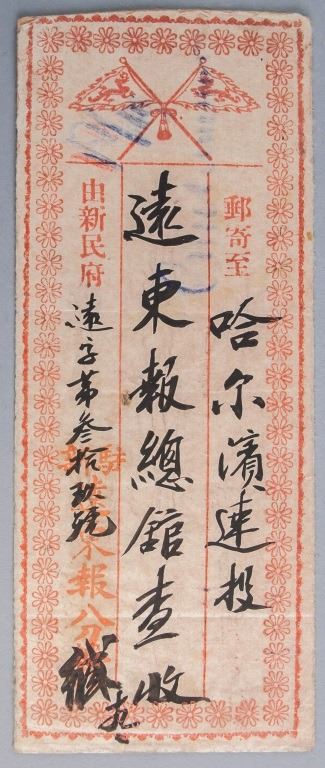 郵寄至 哈尔濱速投
遠東報總館查收
由新民府 遠字第叁拾玖號
報分
緘